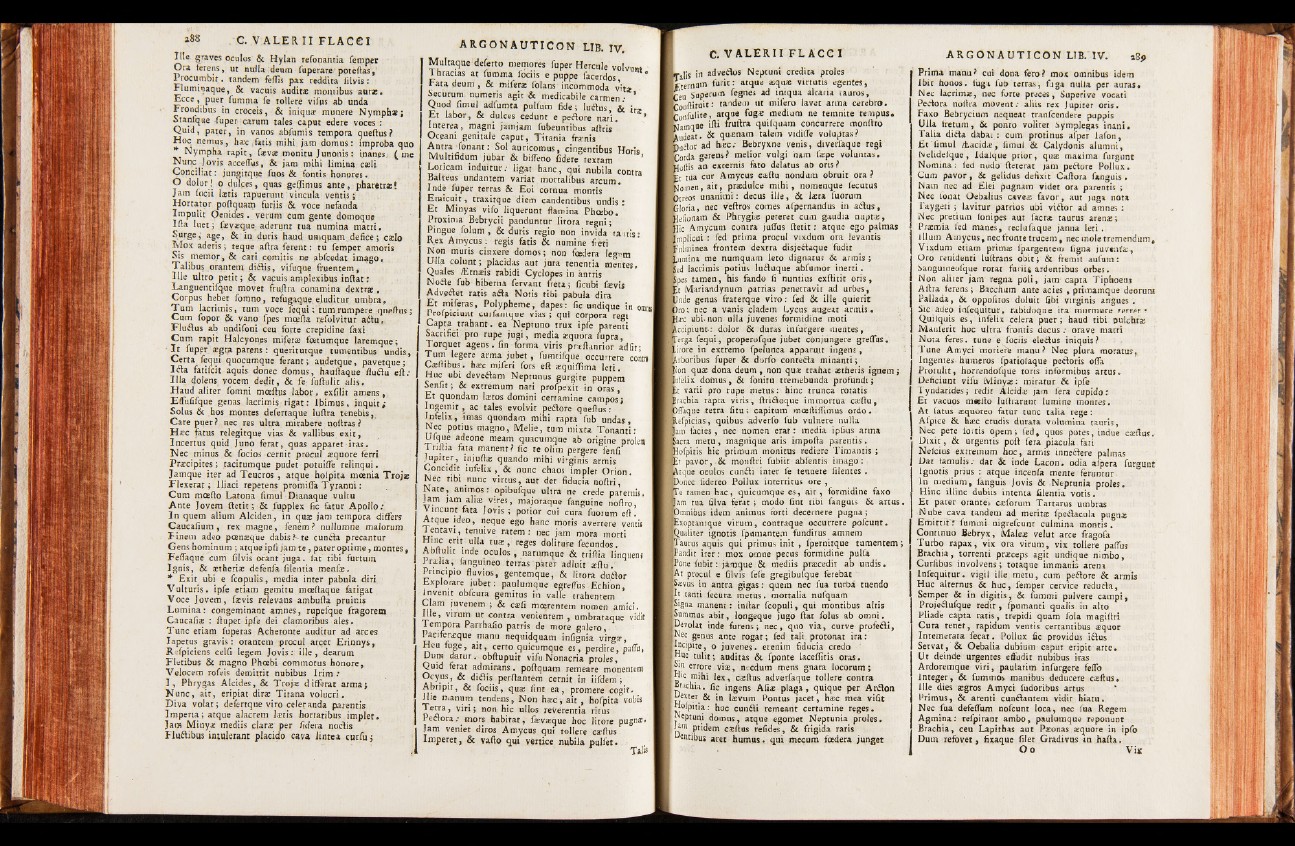 288 C. VALERII FLACCI
Ille graves oculos & Hylan reſonantia ſemper
Ora ferens, ut nulla deum ſuperare poteſtas,
Procumbit. tandem feſſis pax reddita ſilvis:
Fluminaque, & vacuis auditæ montibus auræ.
Ecce, puer ſumma ſe tollere viſus ab unda
Frondibus in croceis, & iniquæ munere Nymphæ;
Stanſque ſuper carum tales caput edere voces:
Quid, pater, in vanos abſumis tempora queſtus?
Hoc nemus, hæc fatis mihi jam domus: improba quo me
* Nympha rapit, ſævæ monitu Junonis: inanes.
Nunc Jovis acceſſus, & jam mihi limina cæli
Conciliat: jungitque ſuos & fontis honores.
O dolor! o dulces, quas geſſimus ante, pharetræ!
Jam ſocii lætis rapuerunt vincula ventis;
Hortator poſtquam furiis & voce nefanda
Impulit Oenides. verum cum gente domoque
Iſta luet; ſævæque aderunt tua numina matri.
Surge, age, & in duris haud unquam defice; cælo
Mox aderis; teque aſtra ferent: tu ſemper amoris
Sis memor, & cari comitis ne abſcedat imago.
Talibus orantem dictis, viſuque fruentem,
Ille ultro petit; & vacuis amplexibus inſtat:
Languentiſque movet fruſtra conamina dextræ.
Corpus hebet ſomno, refugaque eluditur umbra.
Tum lacrimis, tum voce ſequi: tum rumpere queſtus;
Cum ſopor & vano ſpes mœſta reſolvitur actu.
Fluctus ab undiſoni ceu forte crepidine ſaxi
Cum rapit Halcyones miſeræ fœtumque laremque;
It ſuper ægra parens: queriturque tumentibus undis,
Certa ſequi quocumque ferant; audetque, pavetque;
Icta fatiſcit aquis donec domus, hauſtaque fluctu eſt:
Illa dolens vocem dedit, & ſe ſuſtulit alis.
Haud aliter ſomni mœſtus labor. exſilit amens,
Effuſiſque genas lacrimis rigat: Ibimus, inquit;
Solus & hos montes deſertaque luſtra tenebis,
Care puer? nec res ultra mirabere noſtras?
Hæc fatus relegitque vias & vallibus exit,
Incertus quid Juno ferat, quas apparet iras.
Nec minus & ſocios cernit procul æquore ferri
Præcipites; tacitumque pudet potuiſſe relinqui.
Jamque iter ad Teucros, atque hoſpita mœnia Trojæ
Flexerat; Iliaci repetens promiſſa Tyranni:
Cum mœſto Latona ſimul Dianaque vultu
Ante Jovem ſtetit; & ſupplex ſic fatur Apollo:
In quem alium Alciden, in quæ jam tempora differs
Caucaſium, rex magne, ſenem? nullumne malorum
Finem adeo pœnæque dabis? te cuncta precantur
Gens hominum: atque ipſi jam te, pater optime, montes,
Feſſaque cum ſilvis orant juga. ſat tibi furtum
Ignis, & ætheriæ defenſa ſilentia menſæ.
* Exit ubi e ſcopulis, media inter pabula diri
Vulturis, ipſe etiam gemitu mœſtaque fatigat
Voce Jovem, ſævis relevans ambuſta pruinis
Lumina: congeminant amnes, rupeſque fragorem
Caucaſiæ: ſtupet ipſe dei clamoribus ales.
Tunc etiam ſuperas Acheronte auditur ad arces
Iapetus. gravis: orantem procul arcet Erinnys,
Reſpiciens celſi legem Jovis: ille, dearum
Fletibus & magno Phœbi commotus honore,
Velocem roſeis demittit nubibus Irim:
I, Phrygas Alcides, & Trojæ differat arma;
Nunc, ait, eripiat diræ Titana volucri.
Diva volat; defertque viro celeranda parentis
Imperia; atque alacrem lætis hortatibus implet.
Jam Minyæ mediis claræ per ſidera noctis
Fluctibus intulerant placido cava lintea curſu;
ARGONAUTICON LIB. IV.
Multaque deſerto memores ſuper Hercule volvunt.
Thracias at ſumma ſociis e puppe ſacerdos,
Fata deum, & miſeræ ſolans incommoda vitæ,
Securum numeris agit & medicabile carmen:
Quod ſimul adſumta pulſum fide; luctus, & iræ,
Et labor, & dulces cedunt e pectore nati.
Interea, magni jamjam ſubeuntibus aſtris
Oceani genitale caput, Titania frænis
Antra ſonant: Sol auricomus, cingentibus Horis,
Multifidum jubar & biſſeno ſidere textam
Loricam induitur: ligat hanc, qui nubila contra
Balteus undantem variat mortalibus arcum.
Inde ſuper terras & Eoi cornua montis
Emicuit, traxitque diem candentibus undis:
Et Minyas viſo liquerunt flamina Phœbo.
Proxima Bebrycii panduntur litora regni;
Pingue ſolum, & duris regio non invida tauris:
Rex Amycus: regis fatis & numine freti
Non muris cinxere domos; non fœdera legum
Ulla colunt; placidas aut jura tenentia mentes.
Quales Ætnæis rabidi Cyclopes in antris
Nocte ſub hiberna ſervant freta; ſicubi ſævis
Advectet ratis acta Notis tibi pabula dira
Et miſeras, Polypheme, dapes: ſic undique in
Proſpiciunt curſantque vias; qui corpora regi
Capta trahant. ea Neptuno trux ipſe parenti
Sacrifici pro rupe jugi, media æquora ſupra,
Torquet agens. ſin forma viris præſtantior adſit;
Tum legere arma jubet, ſumtiſque occurrere contra
Cæſtibus. hæc miſeri ſors eſt æquiſſima leti.
Huc ubi devectam Neptunus gurgite puppem
Senſit; & extremum nati proſpexit in oras,
Et quondam lætos domini certamine campos;
Ingemit, ac tales evolvit pectore queſtus:
Infelix, imas quondam mihi rapta ſub undas,
Nec potius magno, Melie, tum mixta Tonanti:
Uſque adeone meam quacumque ab origine prolem
Triſtia fata manent? ſic te olim pergere ſenſi
Jupiter, injuſtæ quando mihi virginis armis
Concidit infelix, & nunc chaos implet Orion.
Nec tibi nunc virtus, aut det fiducia noſtri,
Nate, animos: opibuſque ultra ne crede paternis.
Jam jam aliæ vires, majoraque ſanguine noſtro,
Vincunt fata Jovis; potior cui cura ſuorum eſt.
Atque ideo, neque ego hanc moris avertere ventis
Tentavi, tenuive ratem: nec jam mora morti
Hinc erit ulla tuæ, reges doliture fecondos.
Abſtulit inde oculos, natumque & triſtia linquens
Prælia, ſanguineo terras pater adluit æſtu.
Principio fluvios, gentemque, & litora ductor
Explorare jubet: paulumque egreſſus Echion,
Invenit obſcura gemitus in valle trahentem
Clam juvenem; & cæſi mœrentem nomen amici.
Ille, virum ut contra venientem, umbrataque vidit
Tempora Parrhaſio patris de more galero,
Paciferæque manu nequidquam inſignia virgæ,
Heu fuge, ait, certo quicumque es, perdite, paſſu,
Dum datur. obſtupuit viſu Nonacria proles,
Quid ferat admirans. poſtquam remeare monentem
Ocyus, & dictis perſtantem cernit in iiſdem;
Abripit, & ſociis, quæ ſint ea, promere cogit.
Ille manum tendens, Non hæc, ait, hoſpita vobis
Terra, viri; non hic ullos reverentia ritus
Pectora: mors habitat, ſævæque hoc litore pugnæ.
Jam veniet diros Amycus qui tollere cæſtus
Imperet, & vaſto qui vertice nubila pulſet.
Talis
C. VALERII FLACCI
Talis in advectos Neptuni credita proles
Æternum furit: atque æquæ virtutis egentes,
Ceu Superum ſegnes ad iniqua altaria tauros,
Conſtituit: tandem ut miſero lavet arma cerebro.
Conſulite, atque fugæ medium ne temnite tempus.
Namque iſti fruſtra quiſquam concurrere monſtro
Audeat. & quænam talem vidiſſe voluptas?
Ductor ad hæc: Bebryxne venis, diverſaque regi
Corda gerens? melior vulgi nam ſæpe voluntas.
Hoſtis an externis fato delatus ab oris?
Et tua cur Amycus cæſtu nondum obruit ora?
Nomen, ait, prædulce mihi, nomenque ſecutus
Otreos unanimi: decus ille, & læta ſuorum
Gloria, nec veſtros comes aſpernandus in actus,
Heſionam & Phrygiæ peteret cum gaudia nuptæ,
Hic Amycum contra juſſus ſtetit: atque ego palmas
Implicui: ſed prima procul vixdum ora levantis
Fulminea frontem dextra disjectaque fudit
Lumina me numquam leto dignatus & armis;
Sed lacrimis potius luctuque abſumor inerti.
Spes tamen, his fando ſi nuntius exſtitit oris,
Et Mariandynum patrias penetravit ad urbes,
Unde genus fraterque viro: ſed & ille quierit
Oro: nec a vanis cladem Lycus augeat armis.
Hæc ubi non ulla juvenes formidine moti
Accipiunt: dolor & duras inſurgere mentes,
Terga ſequi, properoſque jubet conjungere greſſus.
Litore in extremo ſpelunca apparuit ingens,
Arboribus ſuper & dorſo contecta minanti;
Non quæ dona deum, non quæ trahat ætheris ignem;
Infelix domus, & ſonitu tremebunda profundi;
Et varii pro rupe metus: hinc trunca rotatis
Brachia rapta viris, ſtrictoque immortua cæſtu,
Oſſaque tetra ſitu: capitum mœſtiſſimus ordo.
Reſpicias, quibus adverſo ſub vulnere nulla
Jam facies, nec nomen erat: media ipſius arma
Sacra metu, magnique aris impoſta parentis.
Hoſpitis hic primum monitus rediere Timantis;
Et pavor, & monſtri ſubiit abſentis imago:
Atque oculos cuncti inter ſe tenuere ſilentes.
Donec ſidereo Pollux interritus ore,
Te tamen hac, quicumque es, ait, formidine faxo
Jam tua ſilva ferat; modo ſint tibi ſanguis & artus.
Omnibus idem animus forti decernere pugna;
Exoptantque virum, contraque occurrere poſcunt.
Qualiter ignotis ſpumantem funditus amnem
Taurus aquis qui primus init, ſpernitque tumentem;
Pandit iter: mox omne pecus formidine pulſa
Pone ſubit: jamque & mediis præcedit ab undis.
At procul e ſilvis ſeſe gregibuſque ferebat
Sævus in antra gigas: quem nec ſua turba tuendo
It taciti ſecura metus. mortalia nuſquam
Signa manent: inſtar ſcopuli, qui montibus altis
Summus abit, longeque jugo ſtat ſolus ab omni.
Devolat inde furens; nec, quo via, curve profecti,
Nec genus ante rogat; ſed tali protonat ira:
Incipite, o juvenes. etenim fiducia credo
Huc tulit; auditas & ſponte laceſſitis oras.
Sin errore viæ, necdum mens gnara locorum;
Hic mihi lex, cæſtus adverſaque tollere contra
Brachia. ſic ingens Aſiæ plaga, quique per Arcton
Dexter & in lævum Pontus jacet, hæc mea viſit
Hoſpitia: hoc cuncti remeant certamine reges.
Neptuni domus, atque egomet Neptunia proles.
Jam pridem cæſtus reſides, & frigida raris
Dentibus aret humus. qui mecum fœdera junget
ARGONAUTICON LIB. IV. 289
Prima manu? cui dona fero? mox omnibus idem
Ibit honos. fuga ſub terras, fuga nulla per auras.
Nec lacrimæ, nec forte preces, Superive vocati
Pectora noſtra movent: aliis rex Jupiter oris.
Faxo Bebrycium nequeat tranſcendere puppis
Ulla fretum, & ponto volitet Symplegas inani.
Talia dicta dabat: cum protinus aſper Iaſon,
Et ſimul Æacidæ, ſimul & Calydonis alumni,
Nelideſque, Idaſque prior, quæ maxima ſurgunt
Nomina: ſed nudo ſteterat jam pectore Pollux.
Cum pavor, & gelidus defixit Caſtora ſanguis.
Nam nec ad Elei pugnam videt ora parentis;
Nec ſonat Oebalius caveæ favor, aut juga nota
Taygeti; lavitur patrios ubi victor ad amnes:
Nec pretium ſonipes aut ſacræ taurus arenæ;
Præmia ſed manes, recluſaque janua leti.
Illum Amycus, nec fronte trucem, nec mole tremendum,
Vixdum etiam primæ ſpargentem ſigna juventæ,
Oro renidenti luſtrans obit; & fremit auſum:
Sanguineoſque rotat furiis ardentibus orbes.
Non aliter jam regna poli, jam capta Tiphoeus
Aſtra ferens; Bacchum ante acies, primamque deorum
Pallada, & oppoſitos doluit ſibi virginis angues.
Sic adeo inſequitur, rabidoque ita murmure terret:
Quiſquis es, infelix celera puer; haud tibi pulchræ
Manſerit hoc ultra frontis decus: orave matri
Nota feres. tune e ſociis electus iniquis?
Tune Amyci moriere manu? Nec plura moratus,
Ingentes humeros ſpatioſaque pectoris oſſa
Protulit, horrendoſque toris informibus artus.
Deficiunt viſu Minyæ: miratur & ipſe
Tyndarides; redit Alcidæ jam ſera cupido:
Et vacuos mœſto luſtrarunt lumine montes.
At ſatus æquoreo fatur tunc talia rege:
Aſpice & hæc crudis durata volumina tauris,
Nec pete ſortis opem; ſed, quos potes, indue cæſtus.
Dixit, & urgentis poſt ſera piacula fati
Neſcius extremum hoc, armis innectere palmas
Dat famulis: dat & inde Lacon. odia aſpera ſurgunt
Ignotis prius: atque incenſa mente feruntur
In medium, ſanguis Jovis & Neptunia proles.
Hinc illinc dubiis intenta ſilentia votis.
Et pater orantes cæſorum Tartarus umbras
Nube cava tandem ad meritæ ſpectacula pugnæ
Emittit: ſummi nigreſcunt culmina montis.
Continuo Bebryx, Maleæ velut arce fragoſa
Turbo rapax, vix ora virum, vix tollere paſſus
Brachia, torrenti præceps agit undique nimbo,
Curſibus involvens; totaque immanis arena
Inſequitur. vigil ille metu, cum pectore & armis
Huc alternus & huc, ſemper cervice reducta,
Semper & in digitis, & ſummi pulvere campi,
Projectuſque redit, ſpomanti qualis in alto
Pliade capta ratis, trepidi quam ſola magiſtri
Cura tenet, rapidum ventis certantibus æquor
Intemerata ſecat. Pollux ſic providus ictus
Servat, & Oebalia dubium caput eripit arte.
Ut deinde urgentes effudit nubibus iras
Ardoremque viri, paulatim inſurgere feſſo
Integer, & ſummos manibus deducere cæſtus.
Ille dies ægros Amyci ſudoribus artus
Primus, & arenti cunctantem vidit hiatu.
Nec ſua defeſſum noſcunt loca, nec ſua Regem
Agmina: reſpirant ambo, paulumque reponunt
Brachia, ceu Lapithas aut Pæonas æquore in ipſo
Dum refovet, fixaque ſilet Gradivus in haſta.
O o Vix